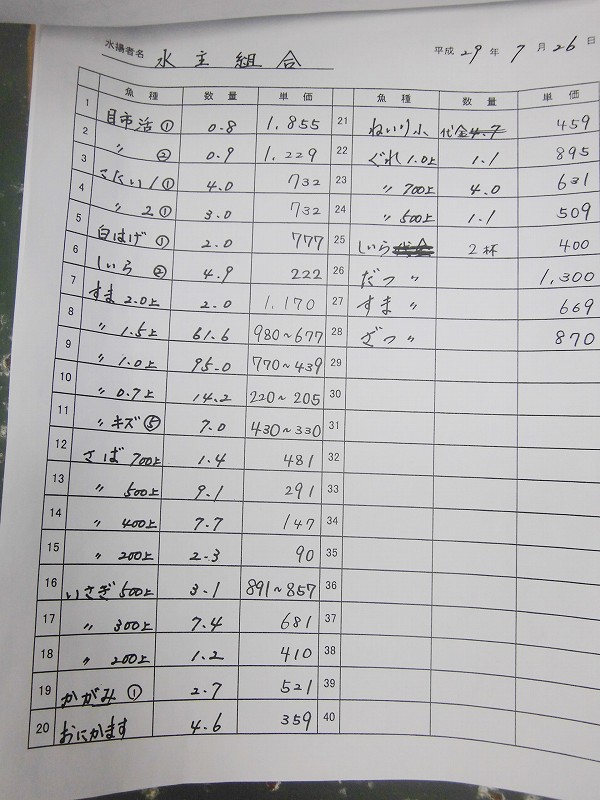 水揚者名 水主組合 平成 29 年 7 月 26 日
魚種 数量 単価 魚種 数量 単価
1 目市活① 0.8 1,855
2 〃 ② 0.9 1,229
3 こだい1① 4.0 732
4 〃 2① 3.0 732
5 白はげ① 2.0 777
6 しいら ② 4.9 222
7 すま 2.0上 2.0 1,170
8 〃 1.5上 61.6 980~677
9 〃 1.0上 95.0 770~439
10 〃 0.7上 14.2 220~205
11 〃 キズ⑤ 7.0 430~330
12 さば 700上 1.4 481
13 〃 500上 9.1 291
14 〃 400上 7.7 147
15 〃 200上 2.3 90
16 いさぎ 500上 3.1 891~857
17 〃 300上 7.4 681
18 〃 200上 1.2 410
19 かがみ ① 2.7 521
20 おにかます 4.6 359
21 ねいり小 代金 4.7 459
22 ぐれ 1.0上 1.1 895
23 〃 700上 4.0 631
24 〃 500上 1.1 509
25 しいら 代金 2杯 400
26 だつ 〃 1,300
27 すま 〃 669
28 ざつ 〃 870
29
30
31
32
33
34
35
36
37
38
39
40